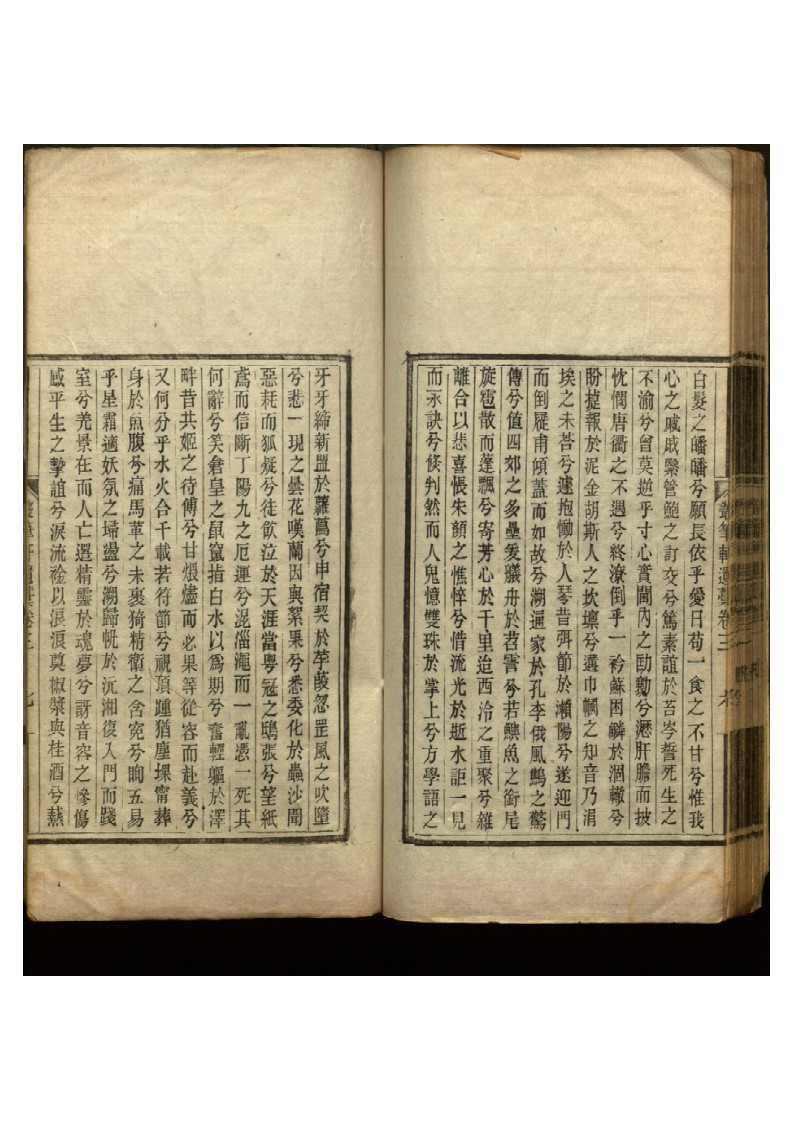 叢筆軒遺藁卷三
白髮之皤皤兮願長依乎愛日苟一食之不甘兮惟我
心之戚戚檠管鮑之訂交兮篤素誼於苔岑誓死生之
不渝兮曾莫逆乎寸心賞閫內之劻勷兮瀝肝膽而披
忱憫唐衢之不遇兮終潦倒乎一衿蘇困鱗於涸轍兮
盼捷報於泥金胡斯人之坎壈兮遘巾幗之知音乃涓
埃之未荅兮遽抱慟於人琴昔弭節於瀨陽兮遂迎門
而倒屣甫傾蓋而如故兮溯通家於孔李俄風鶴之驚
傳兮値四郊之多壘爰艤舟於苕霅兮若鱮魚之銜尾
旋雹散而蓬飄兮寄芳心於千里迨西泠之重聚兮雜
離合以悲喜悵朱顏之憔悴兮惜流光於逝水詎一見
而永訣兮倏判然而人鬼憶雙珠於掌上兮方學語之
牙牙締新盟於蘿蔦兮申宿契於莩葭忽罡風之吹墮
兮悲一現之曇花嘆蘭因與絮果兮悉委化於蟲沙聞
惡耗而狐疑兮徒飲泣於天涯當粵冦之鴟張兮望紙
鳶而信斷丁陽九之厄運兮混淄澠而一亂憑一死其
何辭兮笑倉皇之鼠竄指白水以爲期兮奮輕軀於澤
畔昔共姬之待傅兮甘煨燼而必果等從容而赴義兮
又何分乎水火合千載若符節兮視頂踵猶塵堁甯葬
身於魚腹兮痛馬革之未裹猗精衛之含寃兮晌五易
乎星霜適妖氛之埽盪兮溯歸帆於沅湘復入門而踐
室兮羌景在而人亡選精靈於魂夢兮訝音容之慘傷
感平生之摯誼兮淚流襘以浪浪奠椒漿與桂酒兮爇